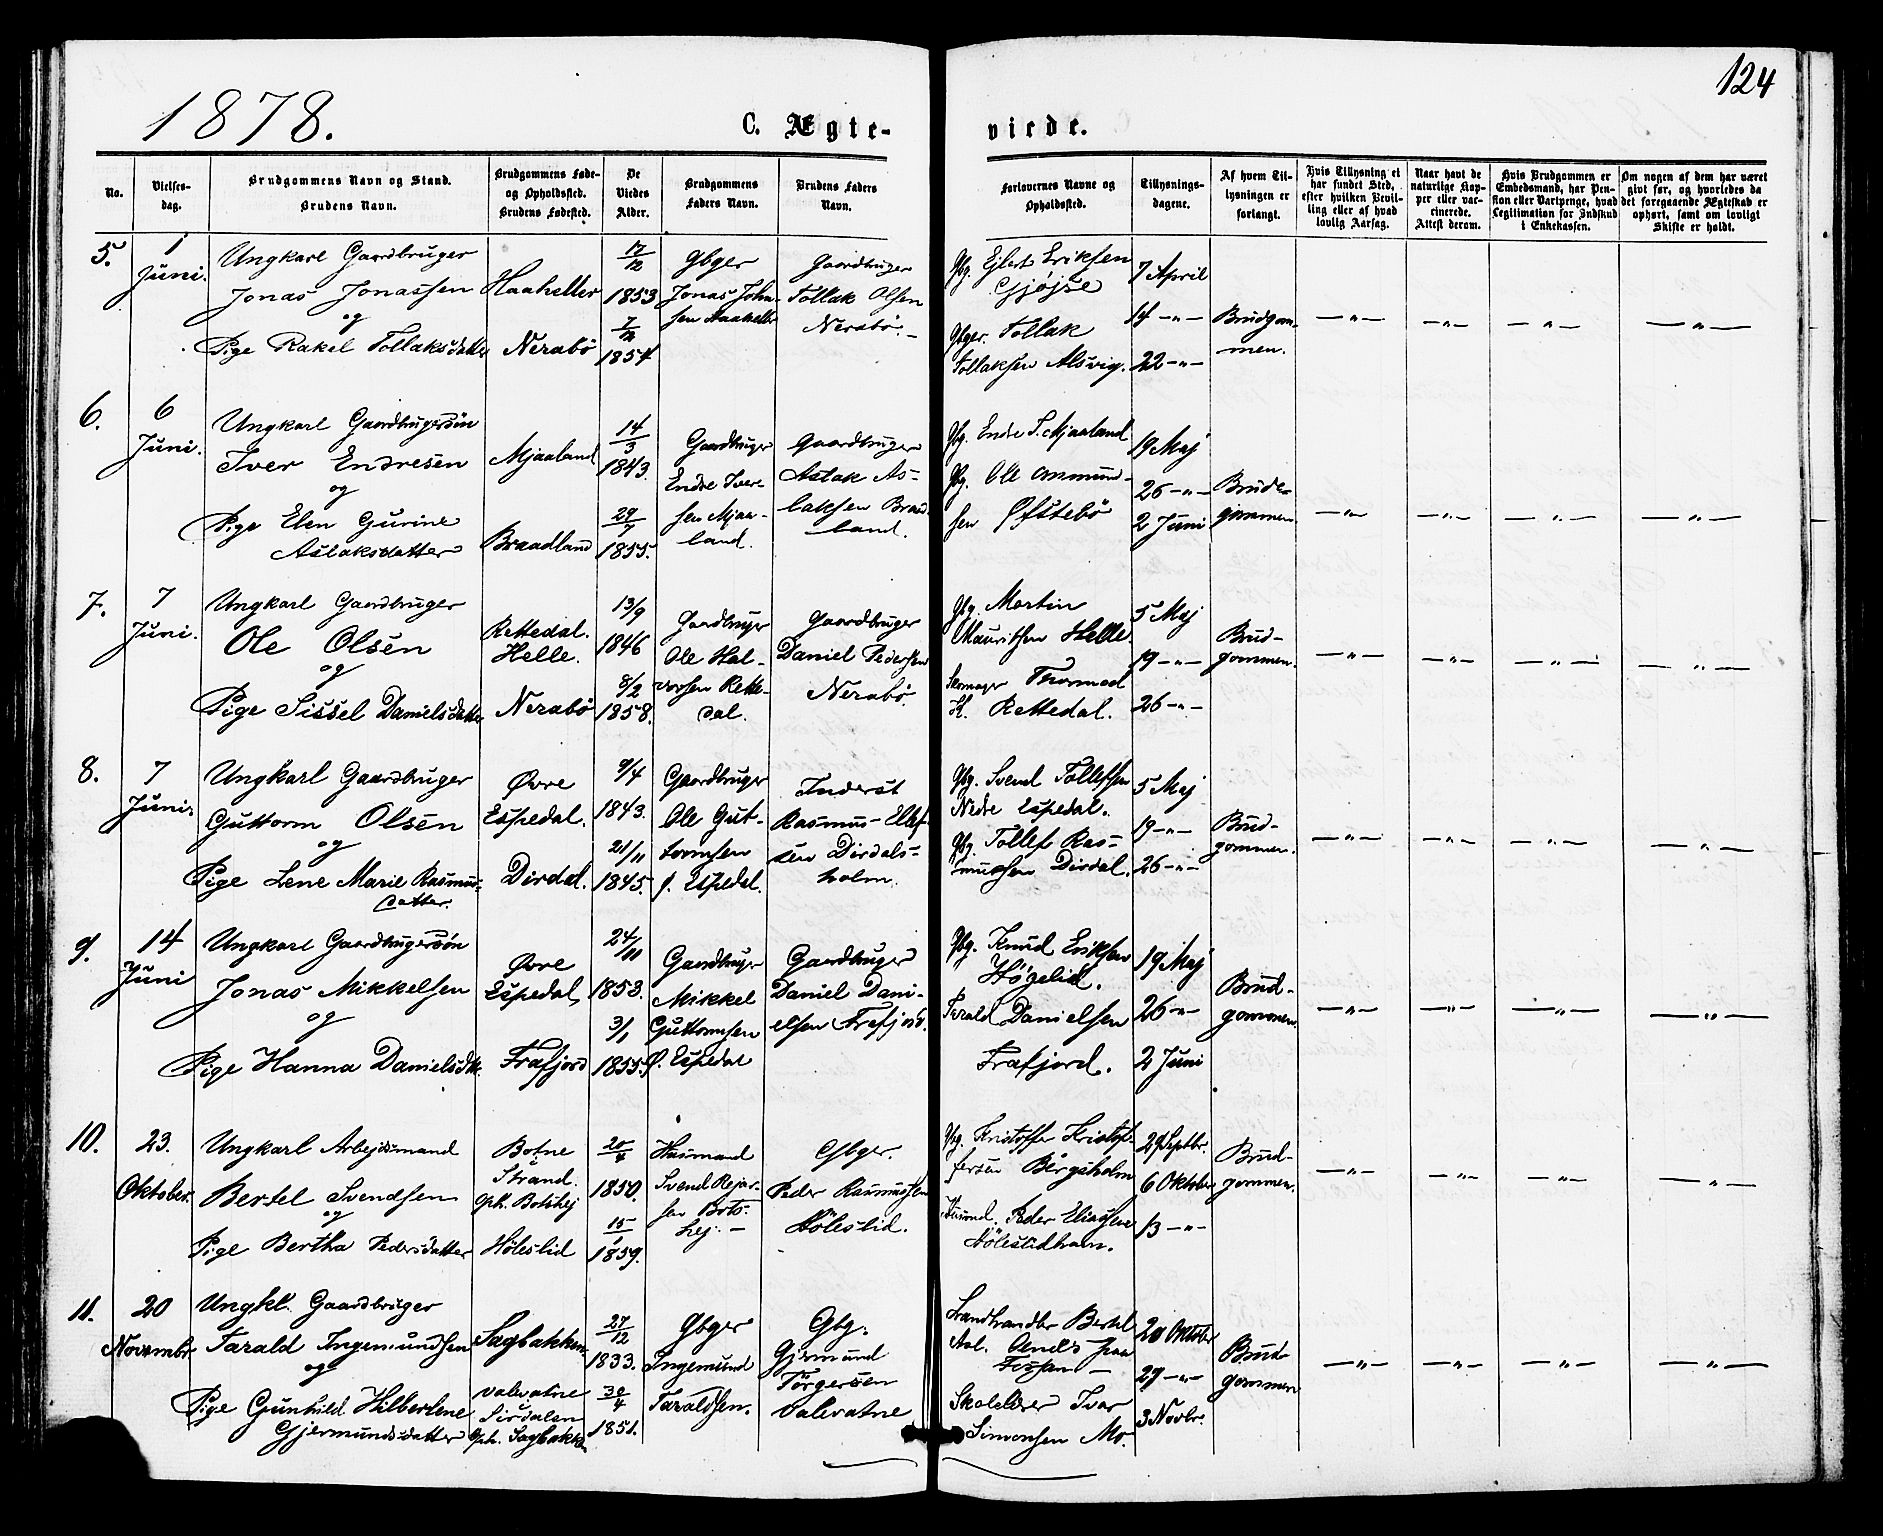 124
1878.
C. Ægte-
viede.
No.
Vielses-
dag.
Brudgommens Navn og Stand.
Brudens Navn.
Brudgommens Føde-
og Opholdssted.
Brudens Fødested.
De
Viedes
Alder.
Brudgommens
Faders Navn.
Brudens Faders
Navn.
Forlovernes Navne og
Opholdssted.
Tillysnings-
dagene.
Af hvem Til-
lysningen er
forlangt.
Hvis Tillysning ei
har fundet Sted,
efter hvilken Bevil-
ling eller af hvad
lovlig Aarsag.
Naar havt de
naturlige Kop-
per eller vac-
cinerede.
Attest derom.
Hvis Brudgommen er
Embedsmand, har Pen-
sion eller Vartpenge, hvad
Legitimation for Indskud
i Enkekassen.
Om nogen af dem har været
gift før, og hvorledes da
det foregaaende Ægteskab er
ophørt, samt om lovligt
Skifte er holdt.
5.
1
Juni.
Ungkarl Gaardbruger
Jonas Jonassen
og
Pige Rakel Tollaksdatter
Haaheller
Nerabö
17/12
1853
7/12
1854
Gbger
Jonas Johan-
sen Haaheller
Gaardbruger
Tollak Olsen
Nerabö. -
Gbg. Ejlert Eriksen
Gjøjse
Gbger. Tollak
Tollaksen Alsvig.
7 April
14 -"-
22 -"-
Brudgom-
men.
-"- -"- -"- -"-
6.
6
Juni.
Ungkarl Gaardbrugersön
Iver Endresen
og
Pige Elen Gurine
Aslaksdatter
Mjaaland
Braadland
14/3
1843.
29/7
1855.
Gaardbruger
Endre Iver-
sen Mjaa-
land.
Gaardbruger
Aslak As-
laksen Braad
land.
Gbg. Endre T. Mjaaland
Gbg. Ole Ommund-
sen Øfstebö
19 Maj
26 -"-
2 Juni
Brude-
gommen.
-"- -"- -"- -"-
7.
7
Juni.
Ungkarl Gaardbruger
Ole Olsen
og
Pige Sissel Danielsdatter
Rettedal.
Helle.
Nerabö
13/9
1846
8/2
1858.
Gaardbruger
Ole Hal-
vorsen Rette-
dal.
Gaardbruger
Daniel Pedersen
Nerabö
Gbg. Martin
Mauritsen Helle
Skomager Thormod
H. Rettedal.
5 Maj
19 -"-
26 -"-
Brud-
gommen.
-"- -"- -"- -"-
8.
7
Juni.
Ungkarl Gaardbruger
Guttorm Olsen
og
Pige Lene Marie Rasmus-
datter.
Øvre
Espedal.
Dirdal.
9/4
1843.
21/11
1845.
Gaardbruger
Ole Gut-
tormsen
Espedal.
Inderst
Rasmus Ellef-
sen Dirdals-
holm.
Gbg. Svend Tollefsen
Nedre Espedal.
Gbg. Tollef Ras-
mussen Dirdal.
5 Maj
19 -"-
26 -"-
Brud-
gommen.
-"- -"- -"- -"-
9.
14
Juni
Ungkarl Gaardbrugersön
Jonas Mikkelsen
og
Pige Hanna Danielsdtr.
Øvre
Espedal
Frafjord
24/11
1853.
3/1
1855.
Gaardbruger
Mikkel
Guttormsen
Ø. Espedal
Gaardbruger
Daniel Dani-
elsen Frafjord.
Gbg. Knud Eriksen
Høgelid.
Tarald Danielsen
Frafjord.
19 Maj
26 -"-
2 Juni
Brud-
gommen.
-"- -"- -"- -"-
10.
23.
Oktober.
Ungkarl Arbejdsmand
Bertel Svendsen
og
Pige Bertha Pedersdatter
Botne
Strand.
Oph. Botshej
Höleslid
20/4
1850.
15/1
1859.
Husmand
Svend Rejar-
sen Bots-
hej. -
Gbger.
Peder Rasmussen
Höleslid.
Gbg. Kristoffer Kristof-
fersen Bergsholm
Husmd. Peder Eliassen
Höleslidham.
29 Septbr.
6 Oktober
13 -"-
Brud-
gommen.
-"- -"- -"- -"-
11.
20
Novembr.
Ungkl. Gaardbruger
Tarald Ingemundsen
og
Pige Gunhild Hilbertene
Gjermundsdatter
Sagbakken
Valevatne
Sirdalen
Oph. Sagbakken
27/12
1833.
30/4
1851.
Gbger
Ingemund
Taraldsen.
Gbg.
Gjermund
Törgersen
Valevatne
Strandhandler Bertel
20 Oktober
29 -"-
3 Novbr.
Skolelærer Ivar
Simonsen Mo.
Brud
gommen
-"- -"- -"- -"-